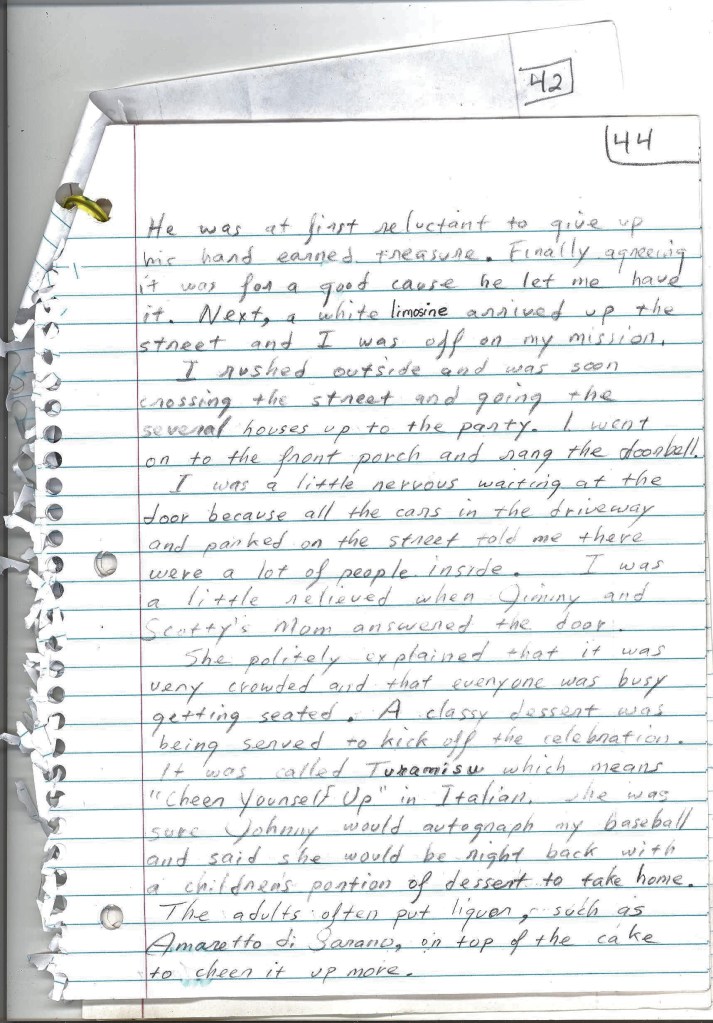 42
44
He was at first reluctant to give up
his hard earned treasure. Finally agreeing
it was for a good cause he let me have
it. Next, a white limosine arrived up the
street and I was off on my mission.
I rushed outside and was soon
crossing the street and going the
several houses up to the party. I went
on to the front porch and rang the doorbell.
I was a little nervous waiting at the
door because all the cars in the driveway
and parked on the street told me there
were a lot of people inside. I was
a little relieved when Jimmy and
Scotty's Mom answered the door.
She politely explained that it was
very crowded and that everyone was busy
getting seated. A classy dessert was
being served to kick off the celebration.
It was called Turamisu which means
"Cheer Yourself Up" in Italian. She was
sure Johnny would autograph my baseball
and said she would be right back with
a children's portion of dessert to take home.
The adults often put liquor, such as
Amaretto di Sarano, on top of the cake
to cheer it up more.